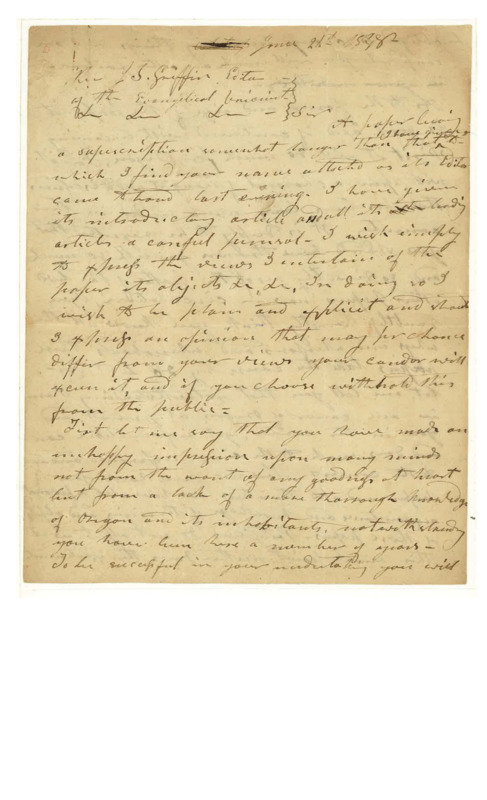 June 21st 1848
Rev J. S. Griffin Editor
of the Evangelical Unionist
&c &c &c - Sir
A paper having
a superscription somewhat longer than that
I have given to
which I find your name attached as its Editor
came to hand last evening. I have given
its introductory article and all its leading
articles a careful perusal - I wish simply
to express the views I entertain of the
paper its objects &c, &c, In doing so I
wish to be plain and explicit and should
I express an opinion that may perchance
differ from your views your candor will
excuse it, and if you choose withhold this
from the public =
First let me say that you have made an
unhappy impression upon many minds
not from the want of any goodness at heart
but from a lack of a more thorough knowledge
of Oregon and its inhabitants, notwithstanding
you have been here a number of years -
To be successful in your undertaking you will